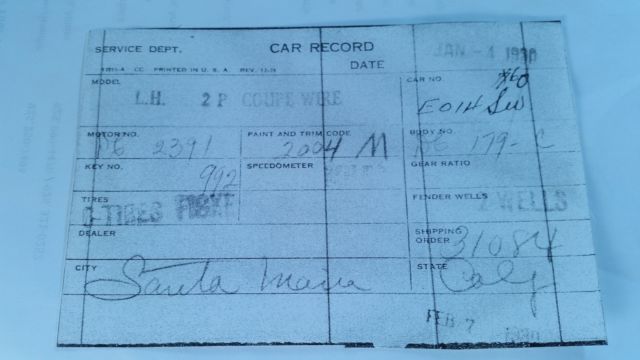 SERVICE DEPT. CAR RECORD JAN -4 1930
DATE
PRINTED IN U. S. A. REV.
MODEL CAR NO.
L.H. 2 P COUPE WIRE E014
MOTOR NO. PAINT AND TRIM CODE BODY NO.
2391 2004 M 179-C
KEY NO. SPEEDOMETER GEAR RATIO
992
TIRES FENDER WELLS
TIRES FISKE WELLS
DEALER SHIPPING ORDER
31084
CITY STATE
Santa Maria Calif
FEB 7 1930